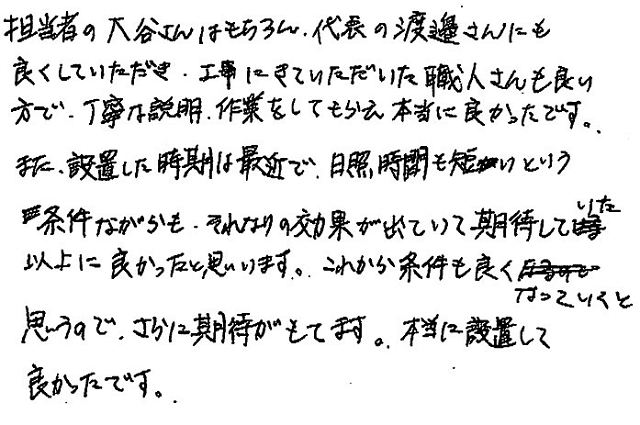 担当者の大谷さんはもちろん、代表の渡邊さんにも
良くしていただき、工事にきていただいた職人さんも良い
方で、丁寧な説明、作業をしてもらえ本当に良かったです。
また、設置した時期は最近で、日照時間も短いという
条件ながらも、それなりの効果が出ていて期待していた
以上に良かったと思います。これから条件も良くなっていくと
思うので、さらに期待がもてます。本当に設置して
良かったです。